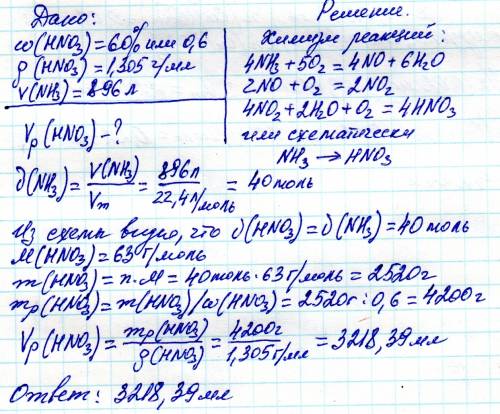 Дано:
ω(HNO₃)=60% или 0,6
ρ(HNO₃)=1,305 г/мл
V(NH₃)=896 л
Vр(HNO₃)-?
Решение.
Химизм реакций:
4NH₃+5O₂=4NO+6H₂O
2NO+O₂=2NO₂
4NO₂+2H₂O+O₂=4HNO₃
или схематически
NH₃→HNO₃
∂(NH₃)=V(NH₃)/Vm=896л/22,4л/моль=40моль
Из схемы видно, что ∂(HNO₃)=∂(NH₃)=40моль
M(HNO₃)=63г/моль
m(HNO₃)=n.M=40моль.63г/моль=2520г
mр(HNO₃)=m(HNO₃)/ω(HNO₃)=2520г:0,6=4200г
Vр(HNO₃)=mр(HNO₃)/ρ(HNO₃)=4200г/1,305г/мл=3218,39мл
Ответ: 3218,39мл